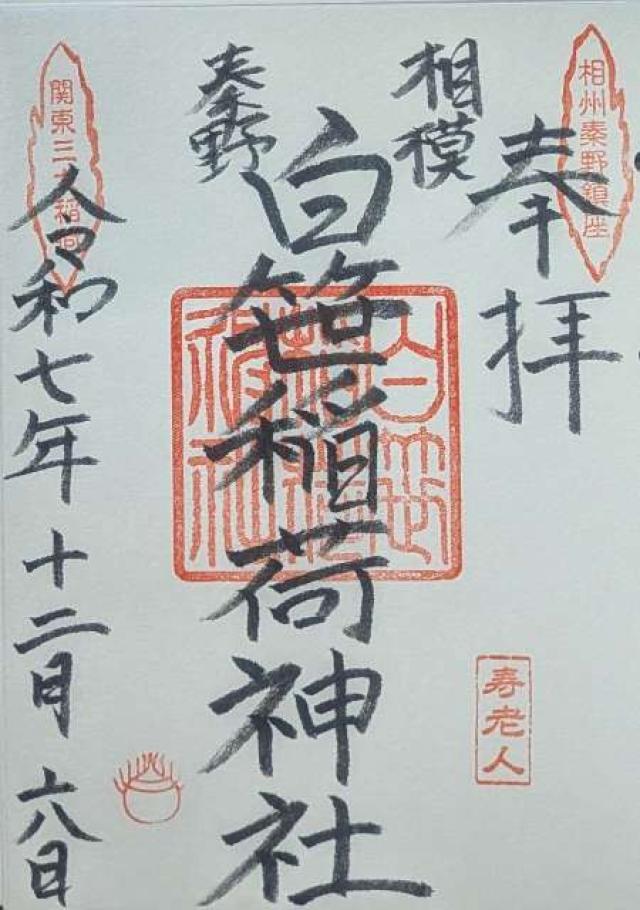 相州秦野鎮座
奉拝
寿老人
相模
秦野
白笹稲荷神社
関東三大稲荷
令和七年十二月六日